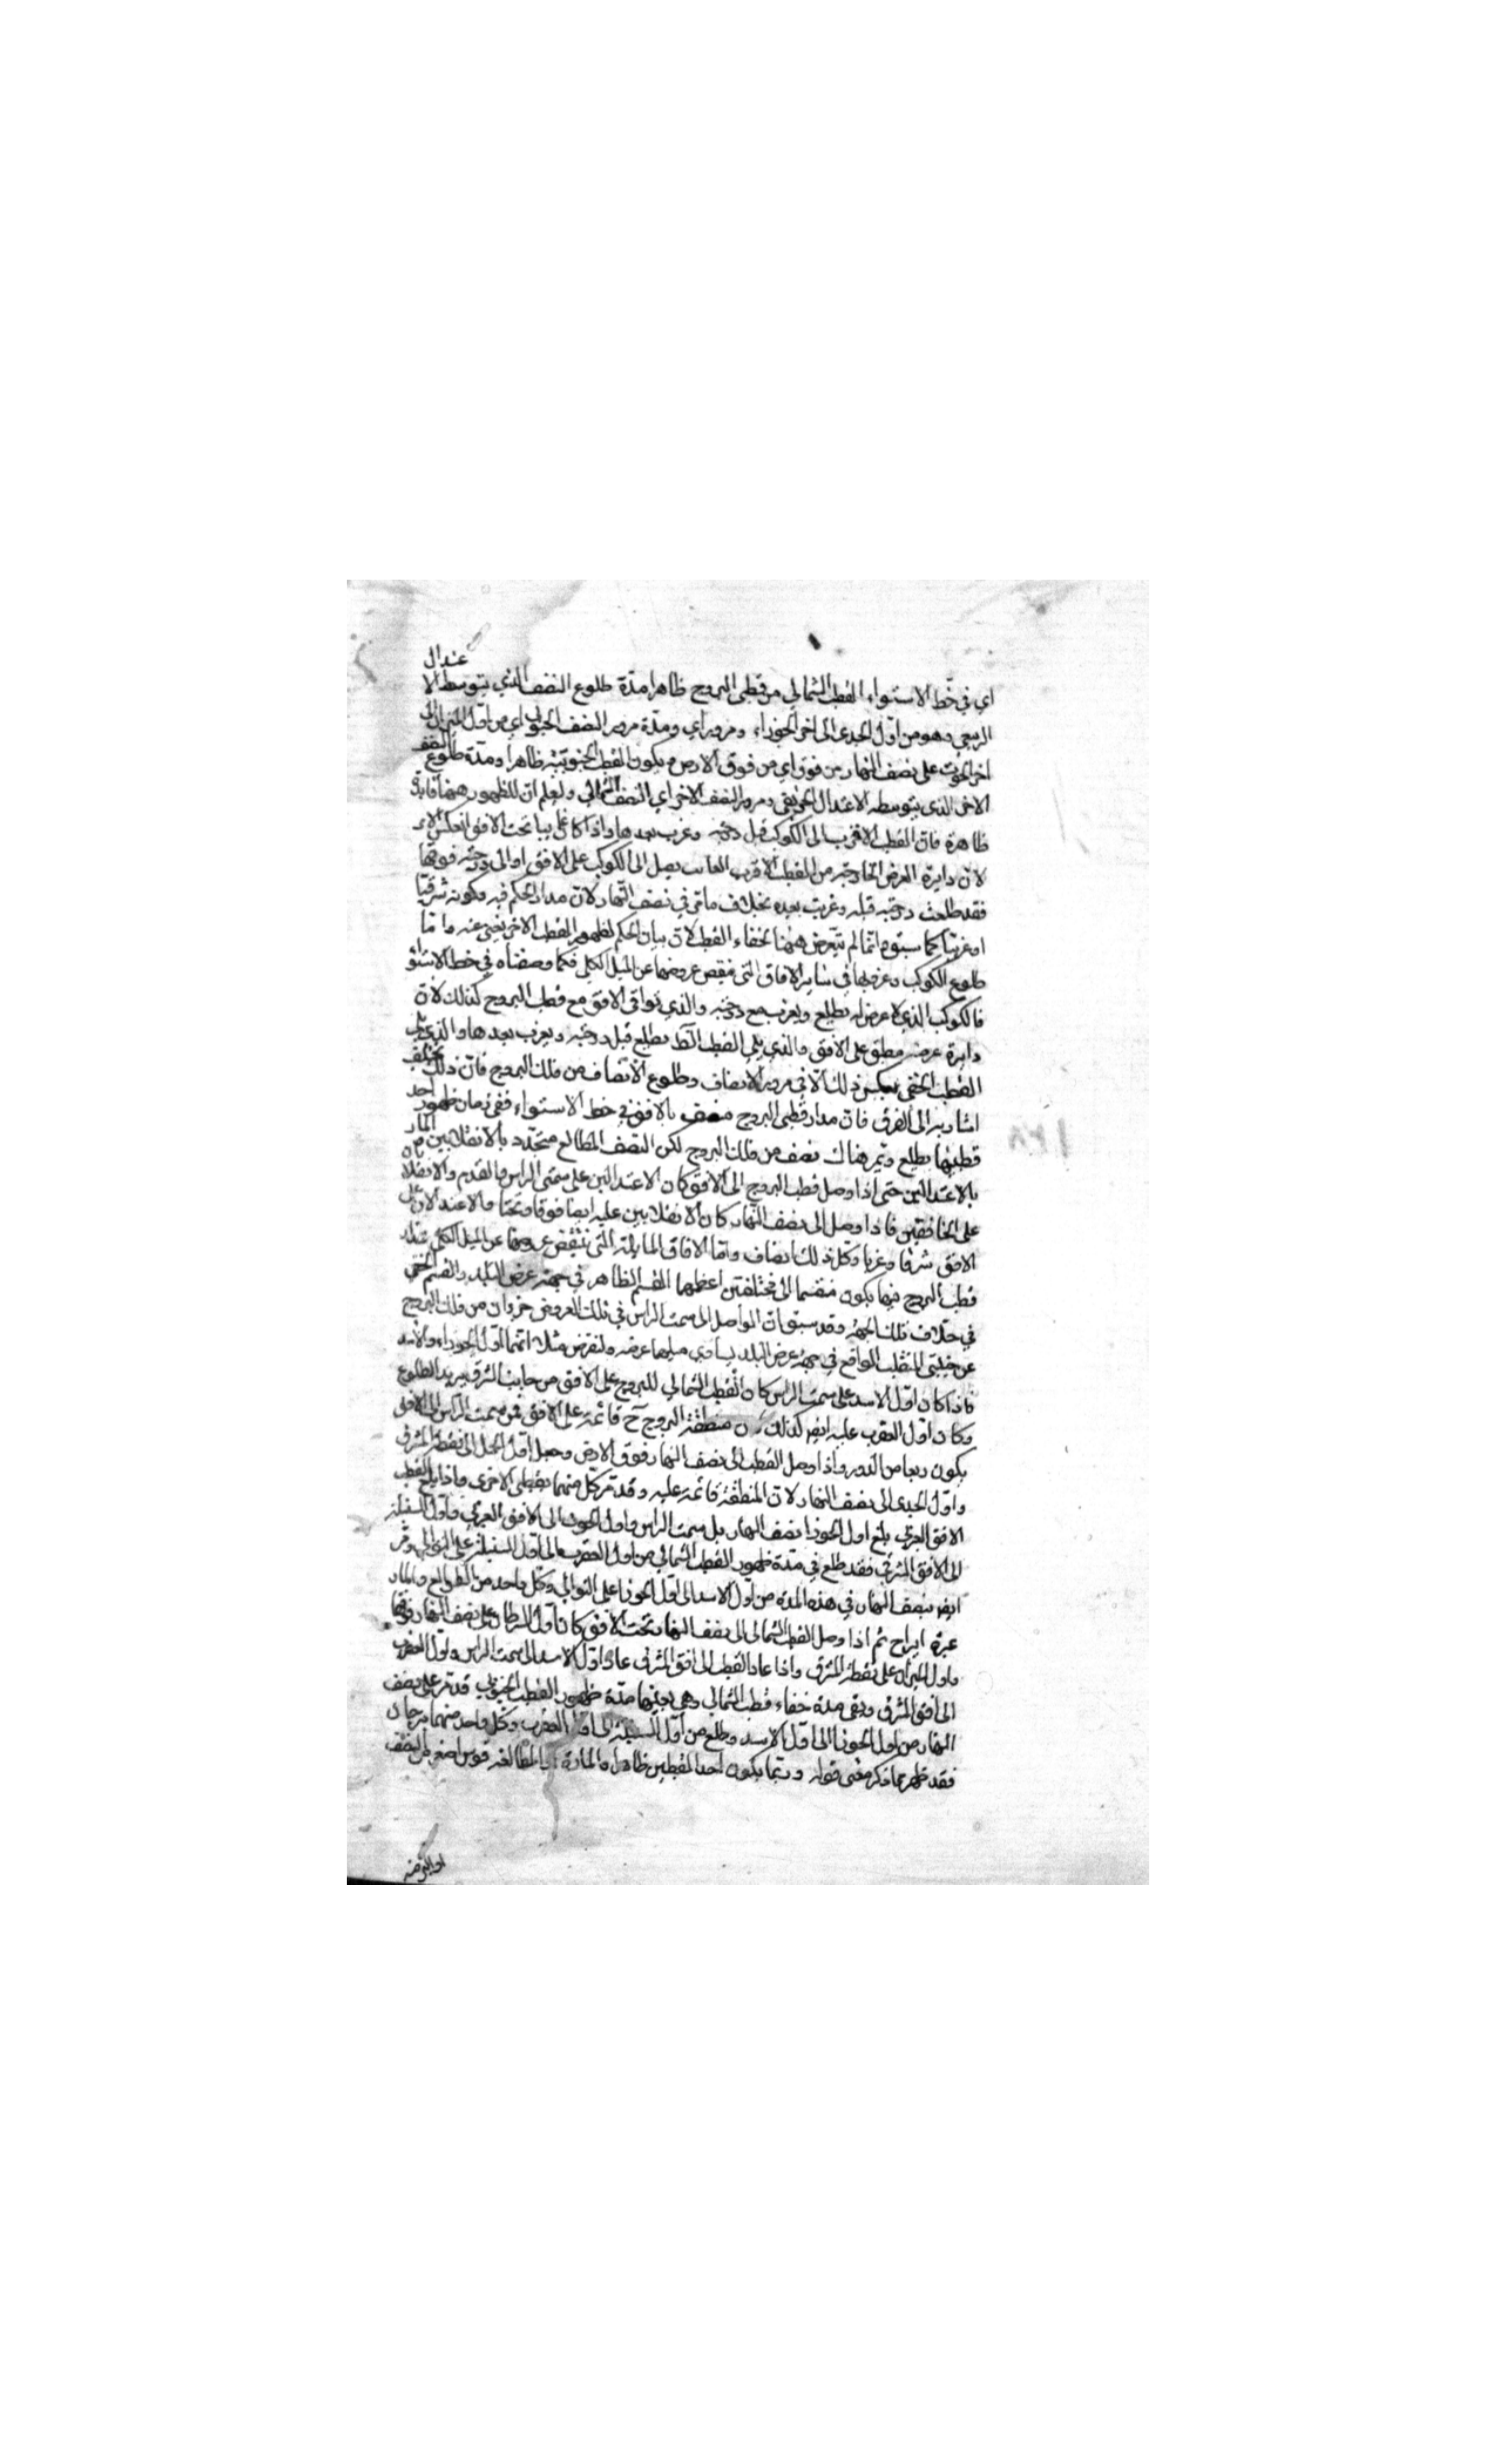 اي في خط الاستواء القطب الشمالي من قطبي البروج ظاهرا مدة طلوع النصف الذي يتوسطه الاعتدال
الربيعي وهو من اول الجدي الى اخر الجوزاء ومرور اي ومدة مرور النصف الجنوبي اي من اول الميزان الى
اخر الحوت على نصف النهار من فوق اي من فوق الارض ويكون القطب الجنوبي ظاهرا ومدة طلوع النصف
الاخر الذي يتوسطه الاعتدال الخريفي ومرور النصف الاخر اي النصف الشمالي وليعلم ان للظهور ههنا فايدة
ظاهرة فان القطب الاقرب الى الكوكب قبل درجته وغرب بعدها واذا كان غايبا تحت الافق انعكس الامر
لان دايرة العرض الخارجة من القطب الاقرب الغايب يصل الى الكوكب على الافق او الى درجته فوقها
فقد طلعت درجته قبله وغربت بعده بخلاف ما مر في نصف النهار لان مدار الحكم فيه وكونه شرقيا
او غربيا كما سبق وانما لم يتعرض ههنا لخفاء القطب لان بيان الحكم لظهور القطب الاخر يغني عنه واما
طلوع الكوكب وغروبها في ساير الافاق التي ينقص عروضها عن الميل الكلي فكما وصفناه في خط الاستواء
فالكوكب الذي لا عرض له يطلع ويغرب مع درجته والذي يوافي الافق مع قطب البروج كذلك لان
دايرة عرضه منطبق على الافق والذي يلي القطب الظ يطلع قبل درجته ويغرب بعدها والذي يلي
القطب الخفي بعكس ذلك الا في مرور الانصاف وطلوع الانصاف من فلك البروج فان ذلك يختلف
اشار به الى الفرق فان مدار قطبي البروج منصف بالافق في خط الاستواء ففي زمان ظهور احد
قطبيها يطلع ويمر هناك نصف من فلك البروج لكن النصف المطالع متحدد بالانقلابين والمار
بالاعتدالين حتى اذا وصل قطب البروج الى الافق كان الاعتدالين على سمتي الراس والقدم والانقلابان
على الخافقين فاذا وصل الى نصف النهار كان الانقلابين عليه ايضا فوقا وتحتا والاعتدالان على
الافق شرقا وغربا وكل ذلك انصاف واما الافاق المايلة التي ينقص عروضها عن الميل الكلي فمدار
قطب البروج فيها يكون منقسما الى مختلفتين اعظمهما القسم الظاهر في جهة عرض البلد والقسم الخفي
في خلاف تلك الجهة وقد سبق ان الواصل الى سمت الراس في تلك العروض جزوان من فلك البروج
عن جنبتي المنقلب الواقع في جهة عرض البلد يساوي ميلهما عرضه ولنفرض مثلا انهما اول الجوزاء والاسد
فاذا كان اول الاسد على سمت الراس كان القطب الشمالي للبروج على الافق من جانب الشرق يريد الطلوع
وكان اول العقرب عليه ايضا كذلك منطقة البروج ح قائمة على الافق فمن سمت الراس الى الافق
يكون ربعا من الدور واذا وصل القطب الى نصف النهار فوق الارض وصل اول الحمل الى نقطة المشرق
واول الجدي الى نصف النهار لان المنطقة قائمة عليه وقد مر كل منهما بقطبي الاخرى واذا بلغ القطب
الافق الغربي بلغ اول الجوزا نصف النهار بل سمت الراس واول الحوت الى الافق الغربي واول السنبلة
الى الافق الشرقي فقد طلع في مدة ظهور القطب الشمالي من اول العقرب الى اول السنبلة على التوالي ومر
ايضا بنصف النهار في هذه المدة من اول الاسد الى اول الجوزا على التوالي وكل واحد من الطوالع والمار
عشرة ابراج ثم اذا وصل القطب الشمالي الى نصف النهار تحت الافق كان اول السرطان على نصف النهار فوقها
واول الميزان على نقطة المشرق واذا عاد القطب الى افق المشرق عاد اول الاسد الى سمت الراس واول العقرب
الى افق المشرق وبقي مدة خفاء قطب الشمالي وهي بعينها مدة ظهور القطب الجنوبي قد مر على نصف
النهار من اول الجوزا الى اول الاسد وطلع من اول السنبلة الى اول العقرب وكل واحد منهما برجان
فقد ظهر مما ذكر معنى قوله وربما يكون احد القطبين ظاهرا والمارة او الطالعة قوس اصغر من النصف